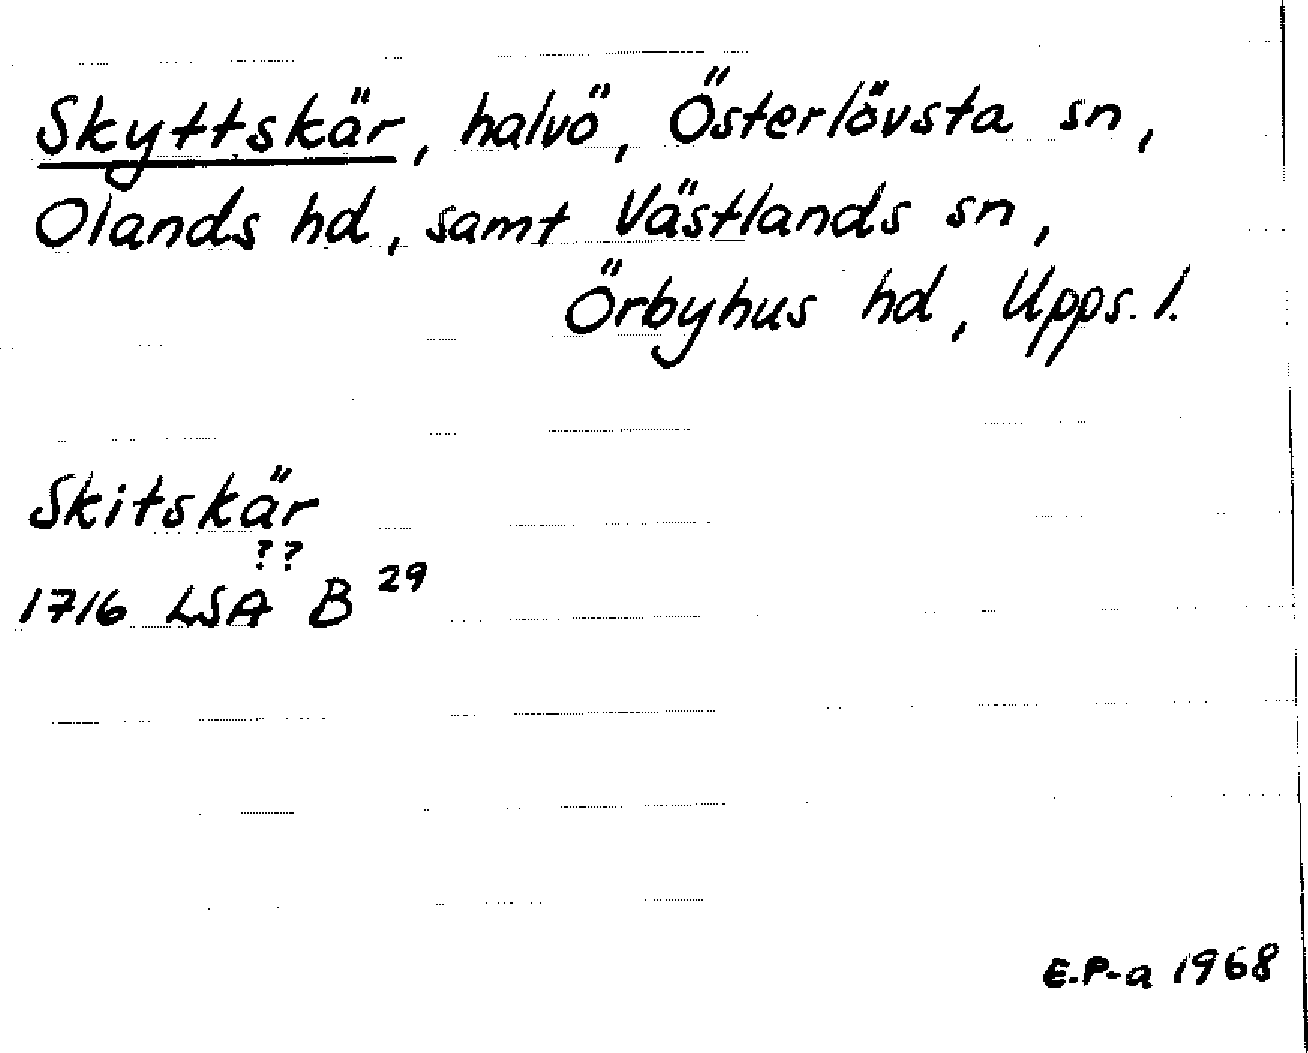 Skyttskär, halvö, Österlövsta sn,
Olands hd, samt Västlands sn,
Örbyhus hd, Upps. l.
Skitskär
??
1716 LSA B 29
E.P-a 1968